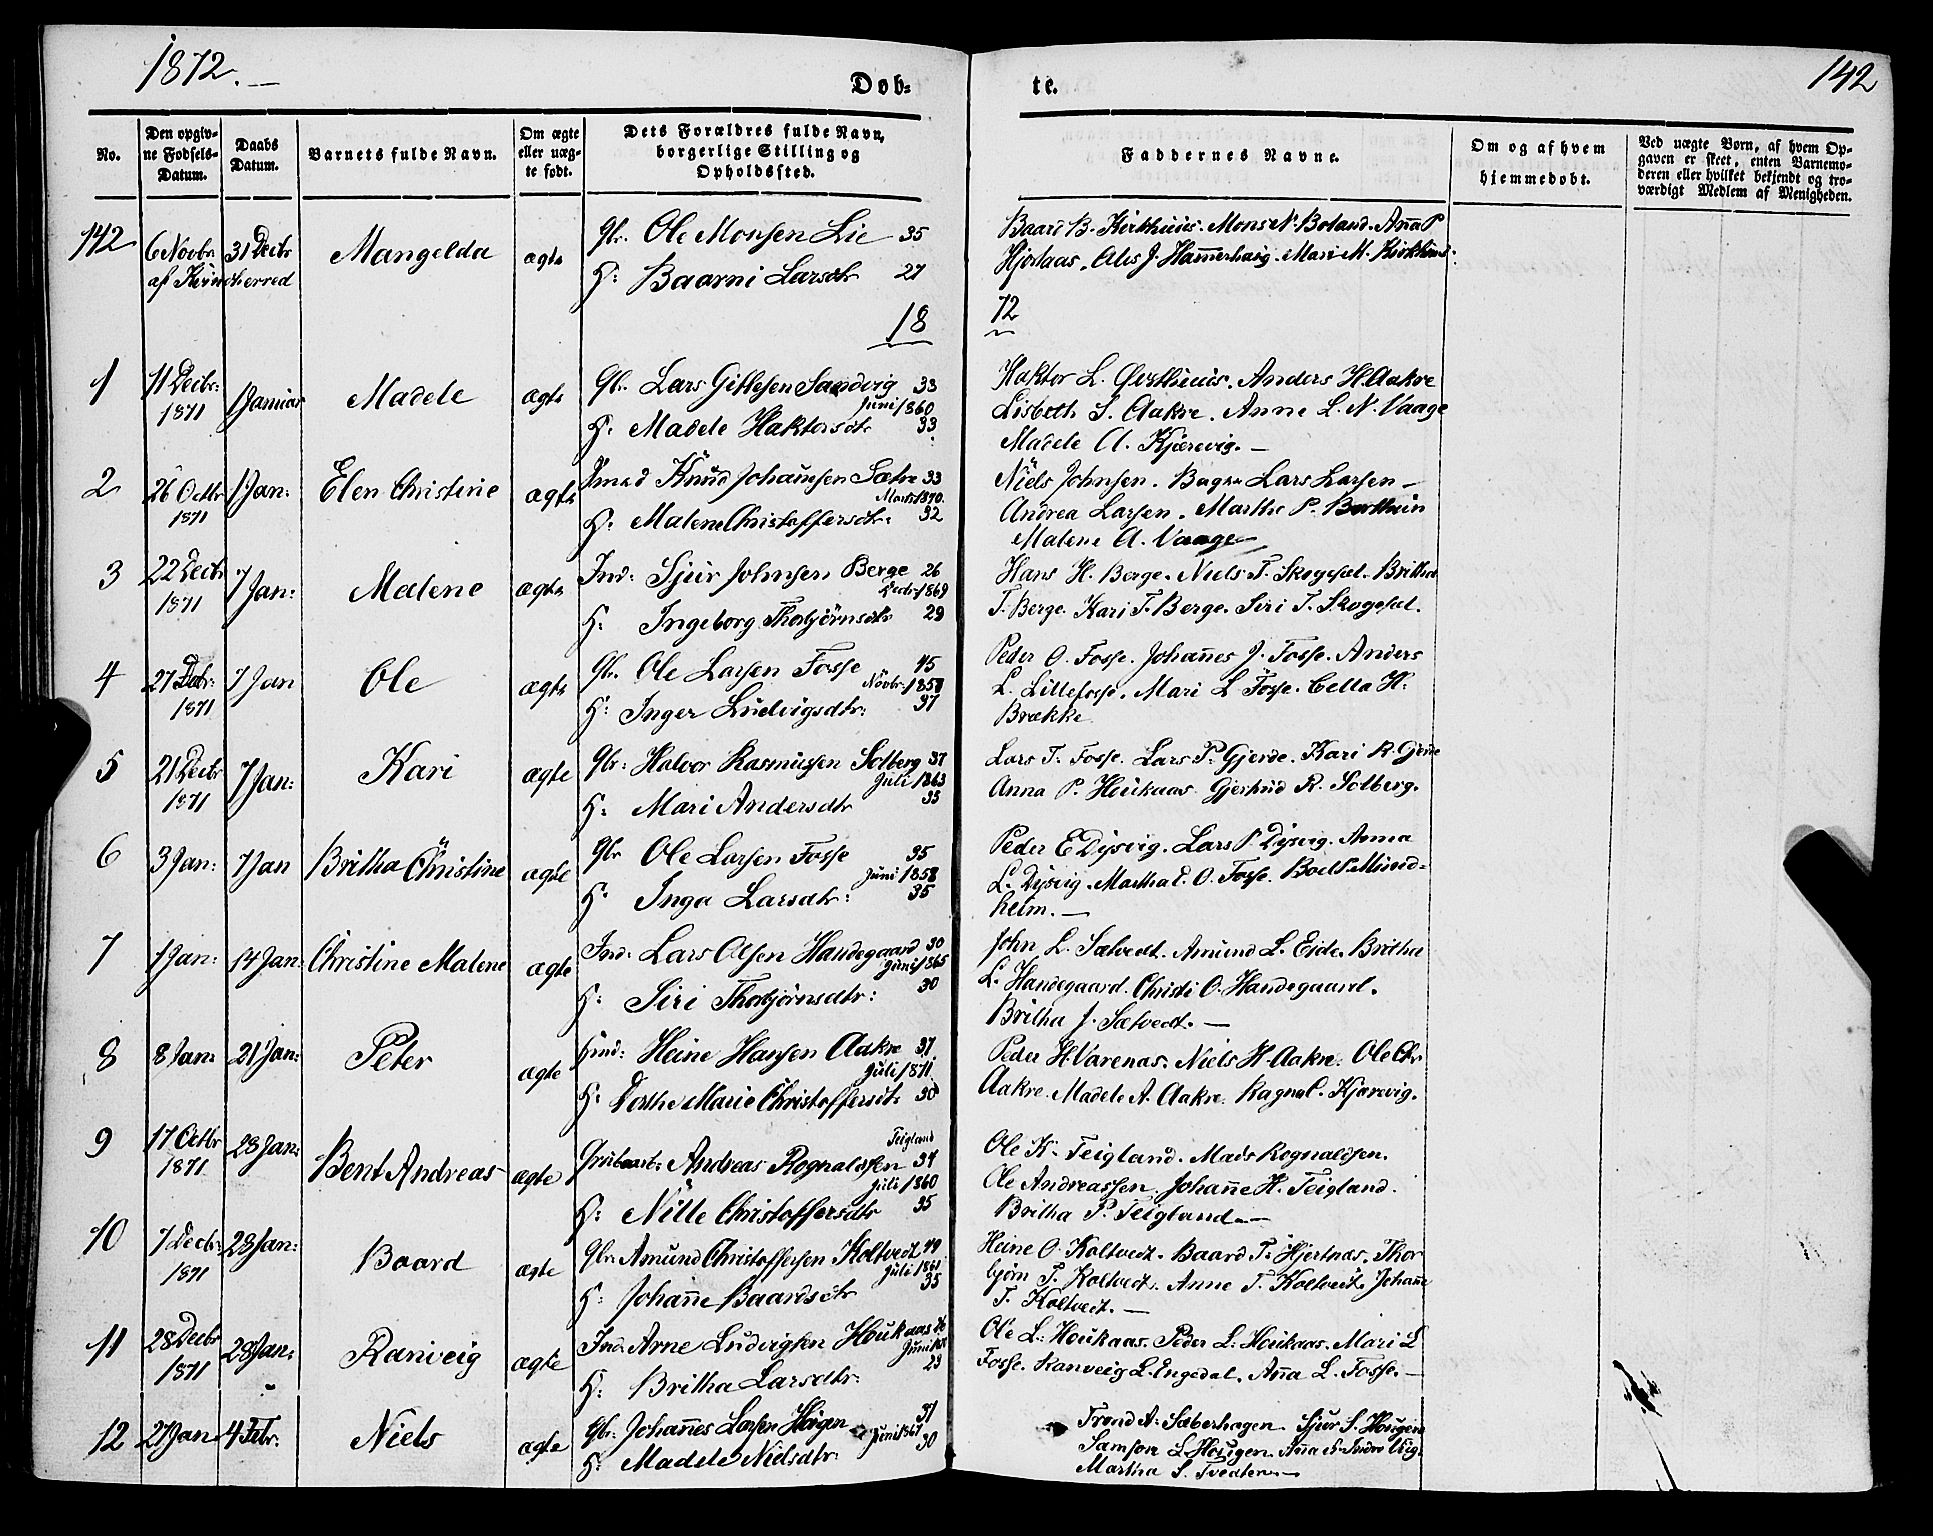 1872.
142
Døb-
te.
No.
Den opgiv-
ne Fødsels-
Datum.
Daabs
Datum.
Barnets fulde Navn.
Om ægte
eller uæg-
te født.
Dets Forældres fulde Navn,
borgerlige Stilling og
Opholdssted.
Faddernes Navne.
Om og af hvem
hjemmedøbt.
Ved uægte Børn, af hvem Op-
gaven er skeet, enten Barnemo-
deren eller hvilket bekjendt og tro-
værdigt Medlem af Menigheden.
142 6 Novbr 31 Decbr Mangelda ægte Gbr. Ole Monsen Lie 35
af Kvinherred H: Baarni Larsdtr 27
Baard B. Mons N. Boland. Anna P
Mari M.
18 72
1 11 Decbr: 1 Januar Madele ægte Gbr. Lars Gitlesen Sandvig 33
1871 Juni 1860
H: Madele Haktorsdtr 33
Haktor L. Anders H. Aakre
Lisbeth S. Aakre. Anne L. N. Vaage
Madele A. Kjærevig. —
2 26 Octbr 1 Jan: Elen Christine ægte Knud Johannesen Sætre 33
1871 1870
H: Malene Christoffersdtr: 32
Niels Johnsen. Lars Larsen —
Andrea Larsen. Marthe P.
Malene A. Vaage
3 22 Decbr 7 Jan: Malene ægte Ind: Sjur Johnsen Berge 26
1871 Decbr 1869
H: Ingeborg Thorbjörnsdtr 29
Hans H. Berge. Niels T. Skogesel. Britha
T. Berge. Kari T. Berge. Siri T. Skogesel.
4 27 Decbr: 7 Jan Ole ægte Gbr. Ole Larsen Fosse 45
1871 Novbr 1858
H: Inger Ludvigsdtr: 37
Peder O. Fosse. Johannes J. Fosse. Anders
L. Lillefosse. Mari L Fosse. Cella H.
Brække
5 21 Decbr 7 Jan: Kari ægte Gbr: Halvor Rasmusen Solberg 37
1871 Juli 1863
H: Mari Andersdtr 35
Lars T. Fosse. Lars P. Gjerde. Kari R. Gjerde
Anna P. Houkaas. Gjertrud R. Solberg.
6 3 Jan: 7 Jan Britha Christine ægte Gbr Ole Larsen Fosse 35
Juni 1858
H: Inga Larsdtr: 35
Peder E Dysvig. Lars P. Dysvig. Anna
L. Dysvig. Martha E. O. Fosse. Bodl P. Mund-
heim. —
7 1 Jan: 14 Jan: Christine Malene ægte Ind: Lars Olsen Handegaard 30
Juni 1865
H: Siri Thorbjörnsdtr: 30
John L. Sætvedt. Amund L. Eide. Britha
L. Handegaard. Christi O. Handegaard.
Britha J. Sætvedt. —
8 8 Jan: 21 Jan: Peter ægte Heine Hansen Aakre 37
Juli 1871
H: Dorthe Marie Christoffersdtr 30
Peder H. Varenas. Niels H. Aakre. Ole Chr
Aakre. Madele A. Aakre. Ragna C. Kjærevig.
9 17 Octbr 28 Jan: Bent Andreas ægte Andreas Rognaldsen Teigland 34
1871 Juli 1860
H: Nille Christoffersdtr 35
Ole K. Teigland. Mads Rognaldsen.
Ole Andreassen. Johanne H. Teigland.
Britha P. Teigland. —
10 7 Decbr: 28 Jan: Baard ægte Gbr: Amund Christoffersen Koltvedt 49
1871 Juli 1861
H: Johanne Baardsdtr 35
Heine O. Koltvedt. Baard T. Hjertnæs. Thor
björn T. Koltvedt. Anne T. Koltvedt. Johanne
T. Koltvedt. —
11 28 Decbr 28 Jan: Ranveig ægte Ind: Arne Ludvigsen Houkaas 26
1871 Juni
H: Britha Larsdtr: 23
Ole L: Houkaas. Peder L: Houkaas. Mari L
Fosse. Ranveig L. Engedal. Anna L. Fosse. —
12 27 Jan 4 Febr: Niels ægte Gbr: Johannes Larsen Hougen 37
Juni 1867
H: Madele Nielsdtr: 30
Trond A. Sæberhagen. Sjur S. Hougen
Samson L. Hougen. Anna
Martha S. Tvedten. —